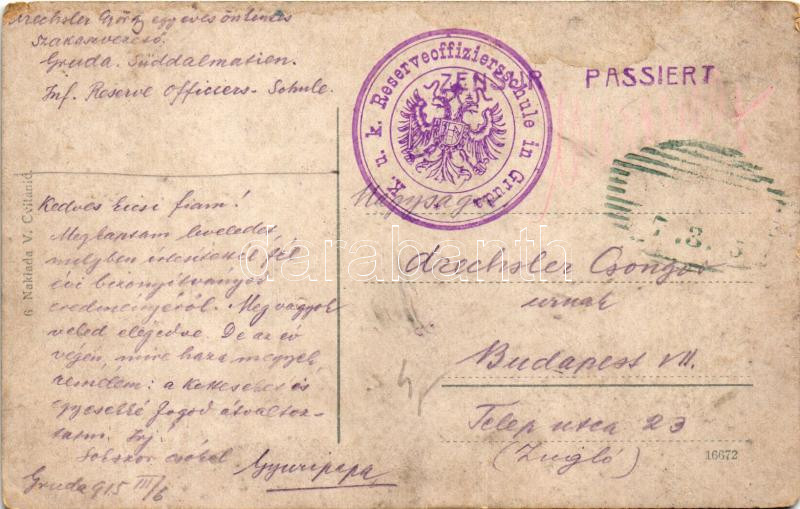 Drechsler György egyéves önkéntes
szakaszvezető.
Gruda. Süddalmatien.
Inf. Reserve Officiers-Schule.
K. u. k. Reserveoffiziersschule in Gruda
ZENSUR PASSIERT
7.3.
6 Naklada V. Csikanić
Kedves Ecsi fiam!
Megkaptam leveledet,
melyben értesítesz fél
évi bizonyítványod
eredményéről. Meg vagyok
veled elégedve. De az év
végén, mire haza megyek,
remélem: a kettesebet és
egyesebbé fogod átváltoz-
tatni. Írj.
Sokszor csókol
Gyuripapa
Gruda 915 III/6
Nagyságos
Drechsler Csongor
urnak
Budapest VII.
Telep utca 23
(Zugló)
16672
darabanth.com